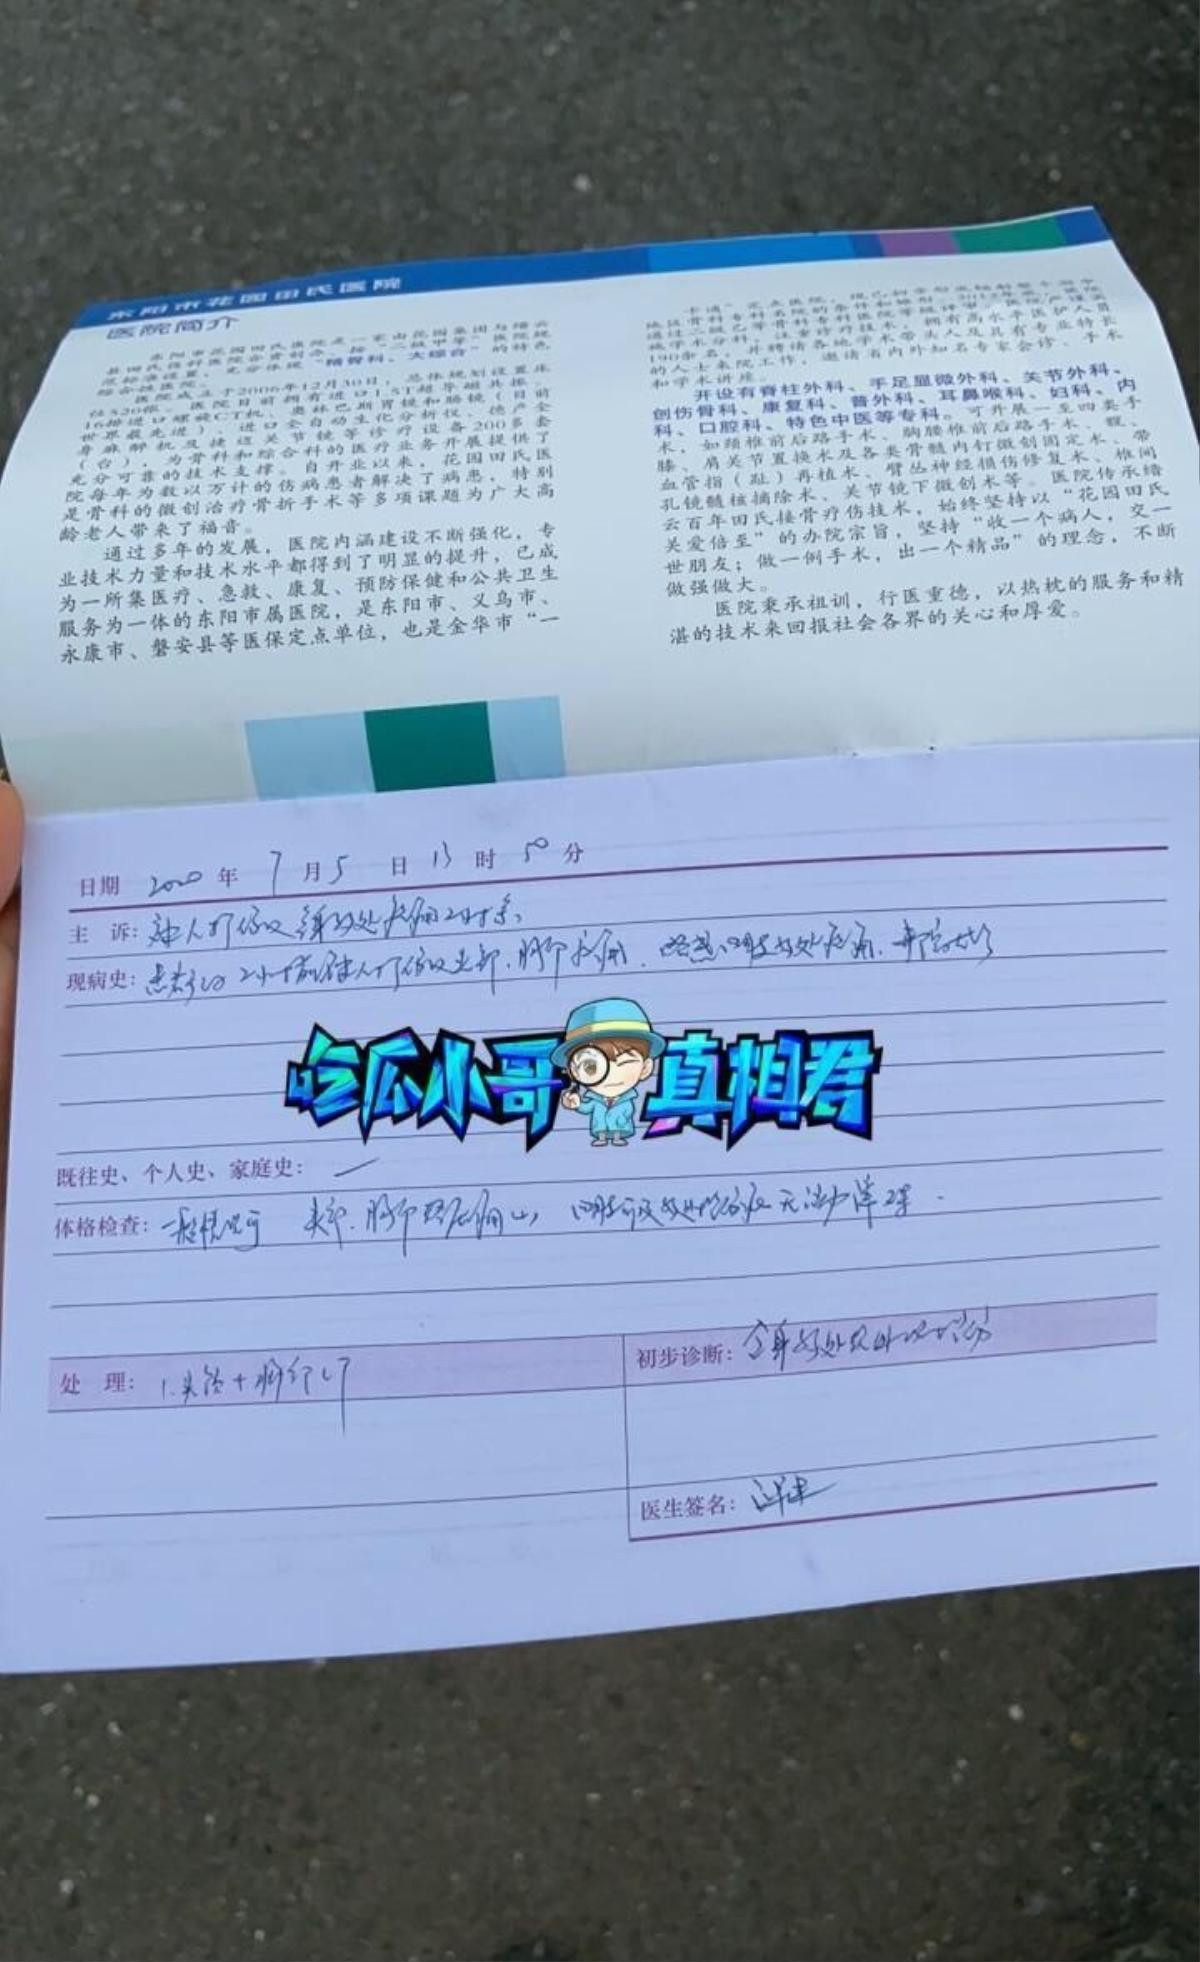 东阳市花园田氏医院
医院简介
东阳市花园田氏医院是一家由花园集团与缙云
县田氏医科医院合资创办、按“二级甲等”医院规
范标准设置、充分体现“精骨科、大综合”的特色
综合性医院。
医院成立于2006年12月30日，总体规划设置床
位320张。医院目前拥有进口1.5T超导磁共振、
16排进口螺旋CT机、奥林巴斯胃镜和肠镜（目前
世界最先进）、进口全自动生化分析仪、德产全
身麻醉机及椎间关节镜等诊疗设备200多套
（台），为骨科和综合科的医疗业务开展提供了
充分可靠的技术支撑。自开业以来，花园田氏医
院每年为数以万计的伤病患者解决了病患，特别
是骨科的微创治疗骨折手术等多项课题为广大高
龄老人带来了福音。
通过多年的发展，医院内涵建设不断强化，专
业技术力量和技术水平都得到了明显的提升，已成
为一所集医疗、急救、康复、预防保健和公共卫生
服务为一体的东阳市属医院，是东阳市、义乌市、
永康市、磐安县等医保定点单位，也是金华市“一
卡通”定点医院，
190余名，并聘请各地学术带头人及具有专业特长
的人士来院工作，邀请省内外知名专家会诊、手术
和学术讲座。
开设有脊柱外科、手足显微外科、关节外科、
创伤骨科、康复科、普外科、耳鼻喉科、妇科、内
科、口腔科、特色中医等专科。可开展一至四类手
术，如颈椎前后路手术、胸腰椎前后路手术、髋、
膝、肩关节置换术及各类骨髓内钉微创固定术、带
血管指（趾）再植术、臂丛神经损伤修复术、椎间
孔镜髓核摘除术、关节镜下微创术等。医院传承缙
云百年田氏接骨疗伤技术，始终坚持以“花园田氏
关爱倍至”的办院宗旨，坚持“收一个病人，交一
世朋友；做一例手术，出一个精品”的理念，不断
做强做大。
医院秉承祖训，行医重德，以热枕的服务和精
湛的技术来回报社会各界的关心和厚爱。
日期 2020 年 7 月 5 日 13 时 50 分
主 诉: 被人打伤致全身多处疼痛2小时余。
现病史: 患者 2小时前被人打伤致头部、胸部疼痛、
吃瓜小哥 真相君
既往史、个人史、家庭史: 一
体格检查: 一般情况可 头部、胸部压痛
处 理: 1.头颅+胸部CT
初步诊断: 全身多处软组织挫伤
医生签名: